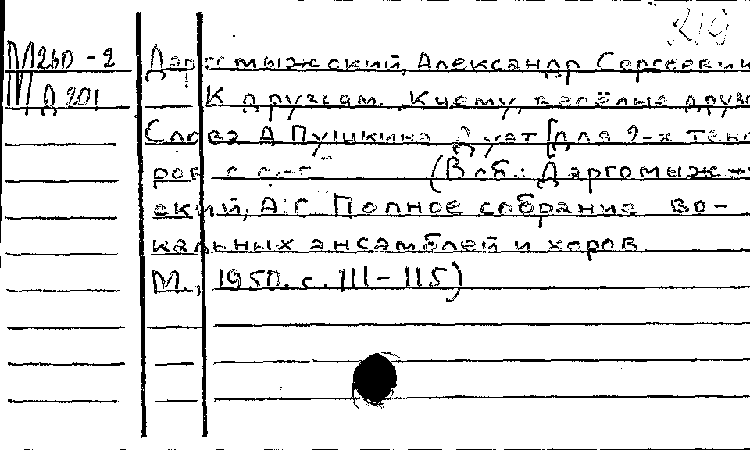 219
М260-2 Даргомыжский, Александр Сергеевич
Д201 К друзьям. К чему, весёлые друз
Слова А Пушкина Дуэт [для 2-х тено
ров с (В сб.: Даргомыж-
ский, А.С. Полное собрание во-
кальных ансамблей и хоров
М., 1950. с. 111-115)